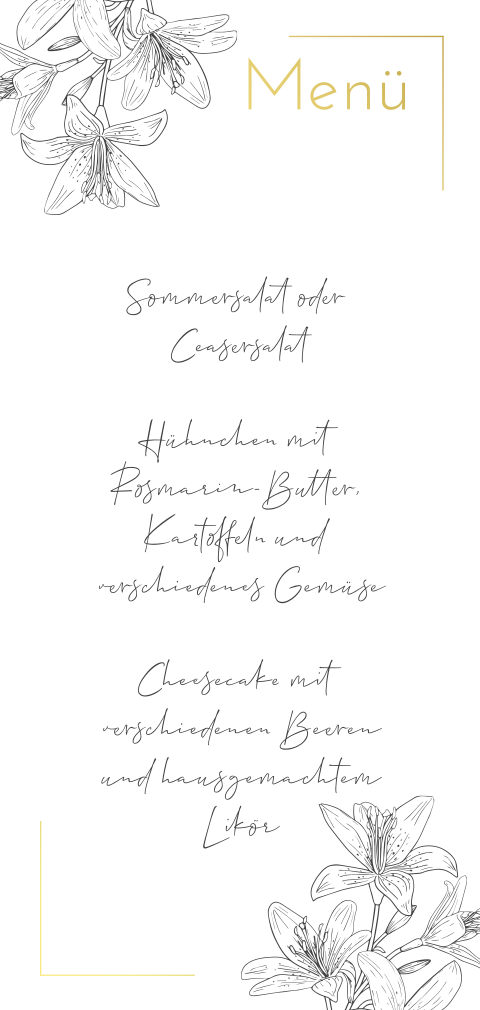 Menü
Sommersalat oder
Ceasersalat
Hühnchen mit
Rosmarin-Butter,
Kartoffeln und
verschiedenes Gemüse
Cheesecake mit
verschiedenen Beeren
und hausgemachtem
Likör